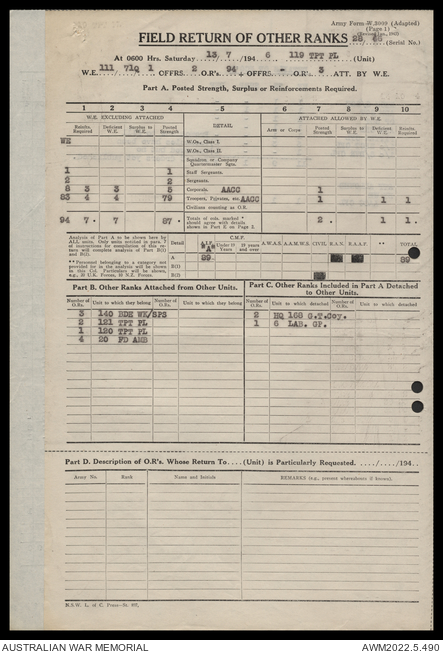 Army Form W.3009 (Adapted)
(Page 1)
FIELD RETURN OF OTHER RANKS 28 48 (Serial No.)
At 0600 Hrs. Saturday 13/7/1946 119 TPT PL (Unit)
W.E. 111 71Q 1 OFFRS. 2 O.R's. 94 + OFFRS - O.R's. 3 ATT. BY W.E.
Part A. Posted Strength, Surplus or Reinforcements Required.
1 2 3 4 5 6 7 8 9 10
W.E. EXCLUDING ATTACHED DETAIL ATTACHED ALLOWED BY W.E.
Reinfts. Required Deficient W.E. Surplus to W.E. Posted Strength Arm or Corps Posted Strength Surplus to W.E. Deficient W.E. Reinfts. Required
WE W.Os., Class I.
W.Os., Class II.
Squadron or Company Quartermaster Sgts.
1 1 Staff Sergeants.
2 2 Sergeants.
8 3 3 5 Corporals. AACC 1
83 4 4 79 Troopers, Privates, etc. AACC 1 1 1
Civilians counting as O.R.
94 7 7 87 Totals of cols. marked * should agree with details shown in Part E on Page 2. 2 1 1
Analysis of Part A to be shown here by ALL units. Detail A.I.F. C.M.F. Under 19 Years 19 years and over A.W.A.S. A.A.M.W.S. CIVIL R.A.N. R.A.A.F. ** TOTAL
A 89 89
B(1)
B(2)
** Personnel belonging to a category not provided for in the analysis will be shown in this Col. Particulars will be shown, e.g., 10 U.K. Forces, 10 N.Z. Forces.
Part B. Other Ranks Attached from Other Units.
Part C. Other Ranks Included in Part A Detached to Other Units.
Number of O.Rs. Unit to which they belong Number of O.Rs. Unit to which they belong Number of O.Rs. Unit to which detached Number of O.Rs. Unit to which detached
3 140 BDE WK/SPS 2 HQ 168 G.T.Coy.
2 121 TPT PL 1 6 LAB. GP.
1 120 TPT PL
4 20 FD AMB
Part D. Description of O.R's. Whose Return To....(Unit) is Particularly Requested. ..../..../194..
Army No. Rank Name and Initials REMARKS (e.g., present whereabouts if known).
AUSTRALIAN WAR MEMORIAL AWM2022.5.490